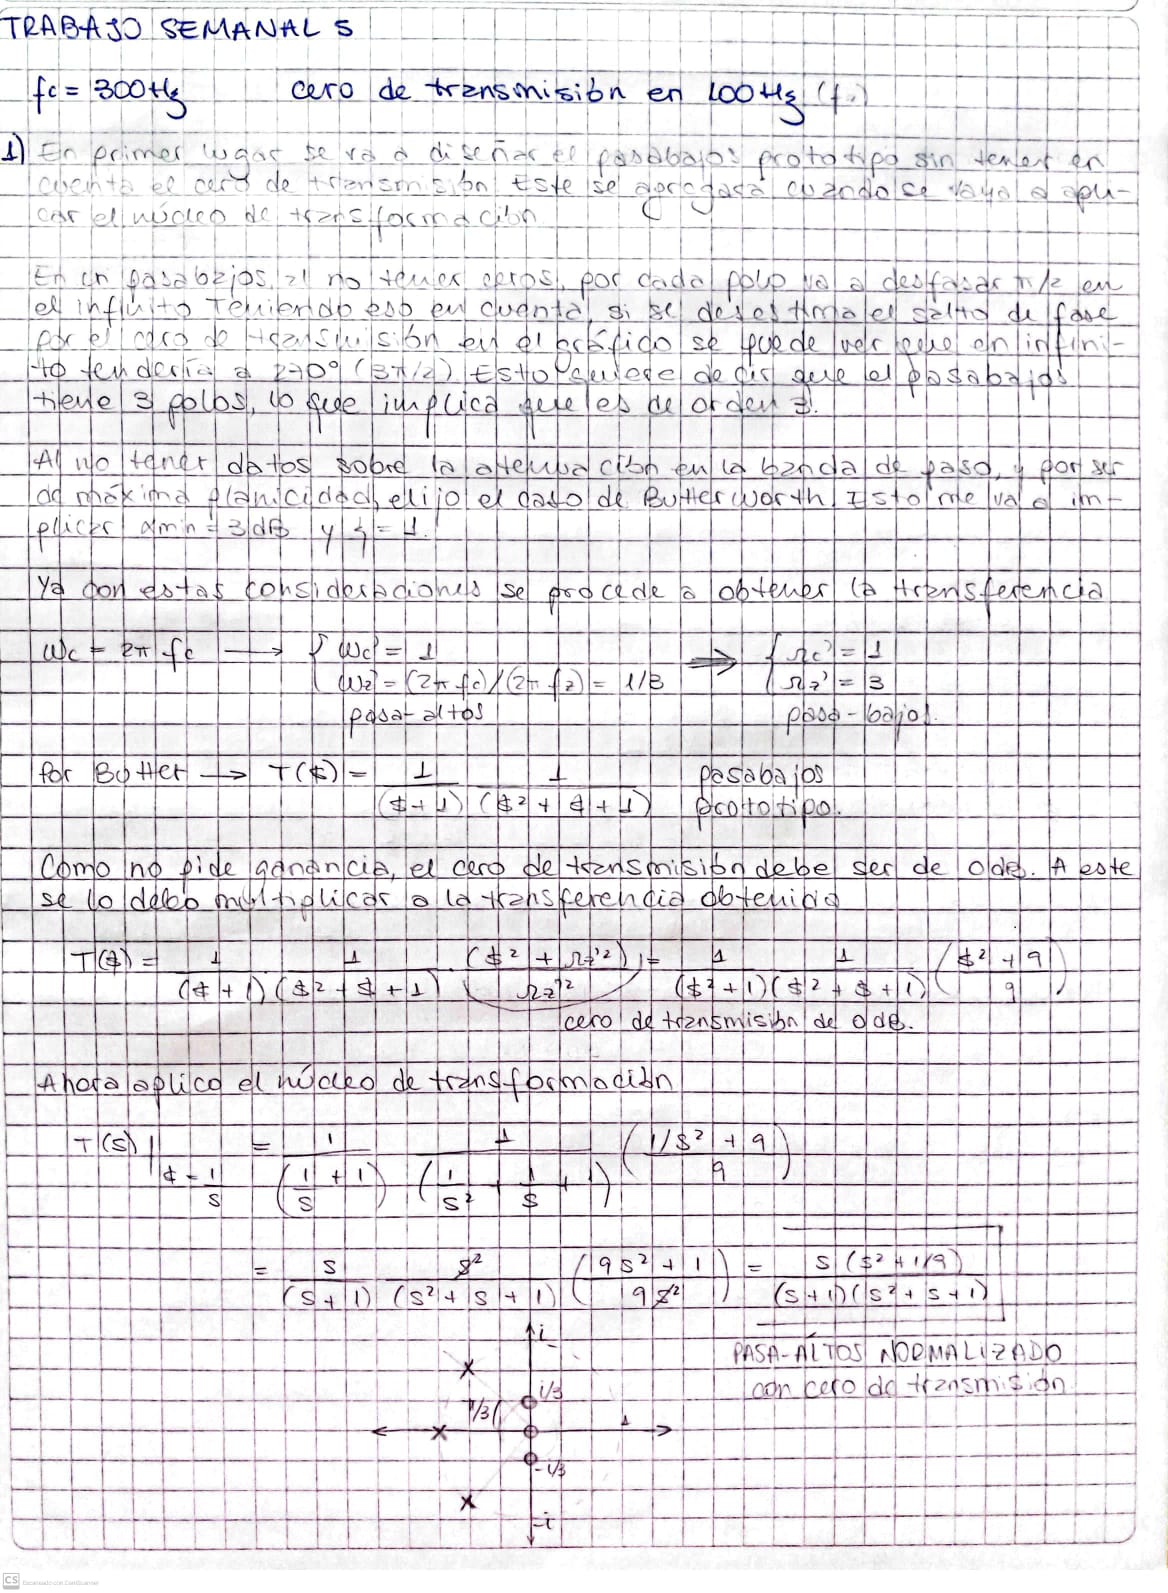 TRABAJO SEMANAL 5
fc = 300Hz cero de transmisión en 100Hz (f
1) En primer lugar se va a diseñar el pasabajos prototipo sin tener en
cuenta el cero de transmisión. Este se agregará cuando se vaya a apli-
car el núcleo de transformación
En un pasabajos, al no tener ceros, por cada polo va a desfasar π/2 en
el infinito. Teniendo eso en cuenta, si se desestima el salto de fase
por el cero de transmisión en el gráfico se puede ver que en infini-
to tendería a 270° (3π/2). Esto quiere decir que el pasabajos
tiene 3 polos, lo que implica que es de orden 3.
Al no tener datos sobre la atenuación en la banda de paso, y por ser
de máxima planicidad, elijo el caso de Butterworth. Esto me va a im-
plicar αmin = 3dB y ξ = 1.
Ya con estas consideraciones se procede a obtener la transferencia
Wc = 2π fc → { Wc' = 1 ⇒ { Ωc' = 1
Wz' = (2π fc)/(2π fz) = 1/3 Ωz' = 3
pasa-altos pasa-bajos.
Por Butter → T($) = 1 1 pasabajos
($+1) ($² + $ + 1) prototipo.
Como no pide ganancia, el cero de transmisión debe ser de 0dB. A este
se lo debo multiplicar a la transferencia obtenida
T($) = 1 1 ($² + Ωz'²) = 1 1 ($² + 9)
($ + 1) ($² + $ + 1) Ωz'² ($² + 1) ($² + $ + 1) 9
cero de transmisión de 0dB.
Ahora aplico el núcleo de transformación
T(S) | = 1 1 (1/S² + 9)
$ = 1/S (1/S + 1) (1/S² + 1/S + 1) 9
= S S² (9S² + 1) = S (S² + 1/9)
(S + 1) (S² + S + 1) 9S² (S + 1) (S² + S + 1)
i
PASA-ALTOS NORMALIZADO
con cero de transmisión
i/3
π/3
1
-i/3
-i
CS Escaneado con CamScanner